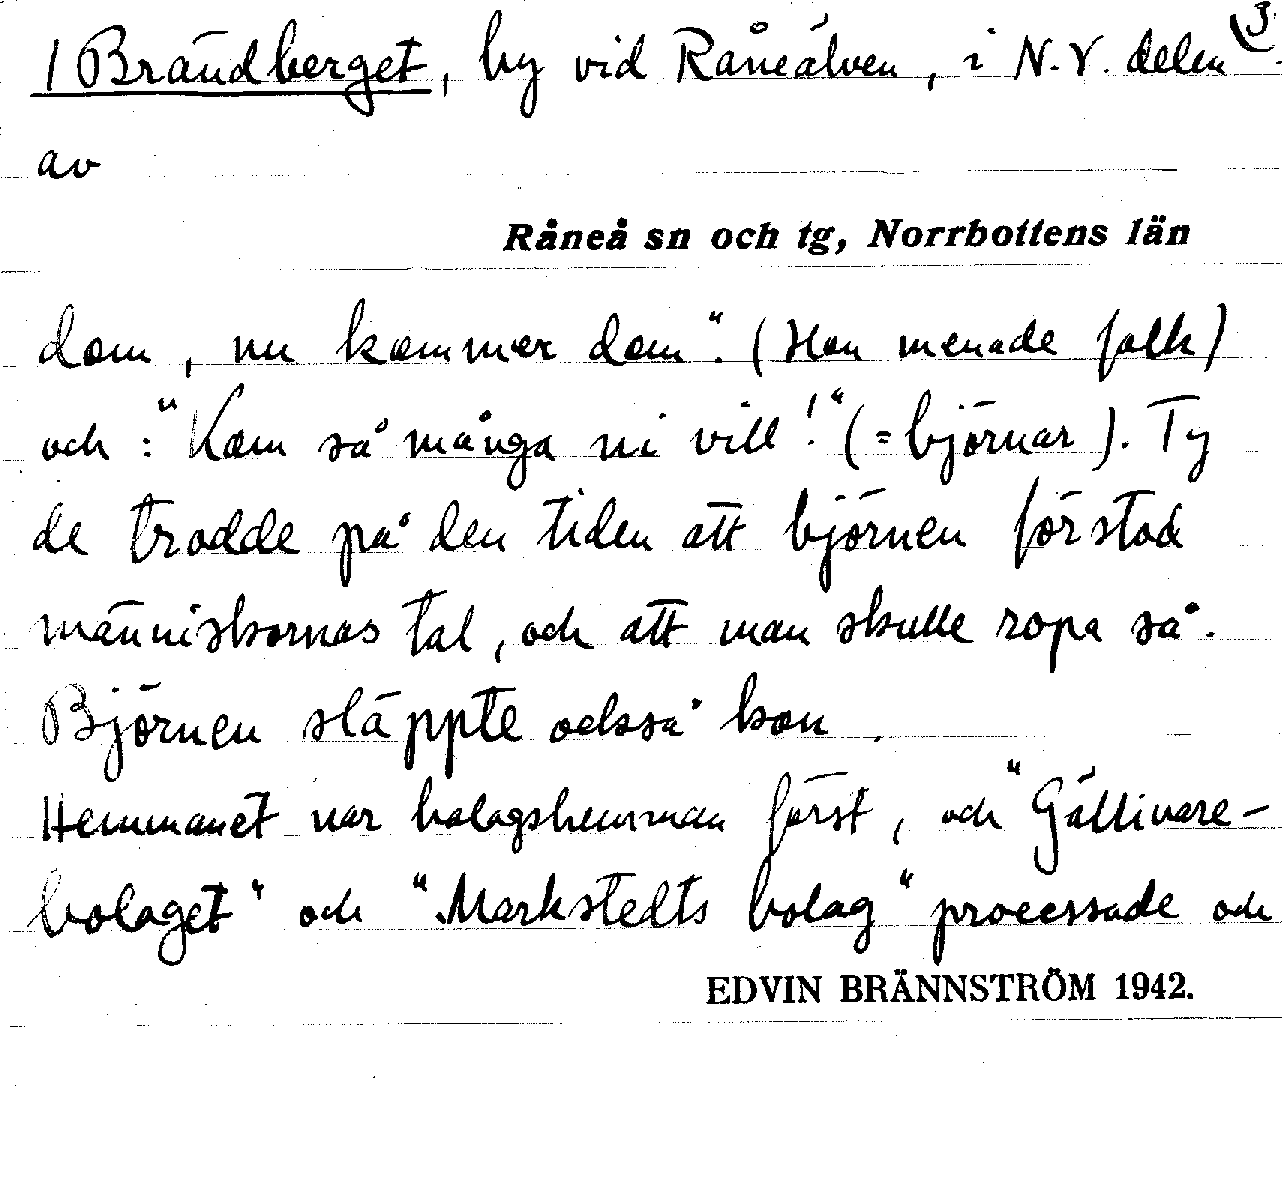 1 Brändberget, by vid Råneälven, i N.V. delen 3.
av
Råneå sn och tg, Norrbottens län
dom, nu kommer dom". (Han menade folk)
och: "Kom så många ni vill!" (= björnar). Ty
de trodde på den tiden att björnen förstod
människornas tal, och att man skulle ropa så.
Björnen släppte också kon.
Hemmanet var bolagshemman först, och "Gällivare-
bolaget" och "Markstedts bolag" processade och
EDVIN BRÄNNSTRÖM 1942.